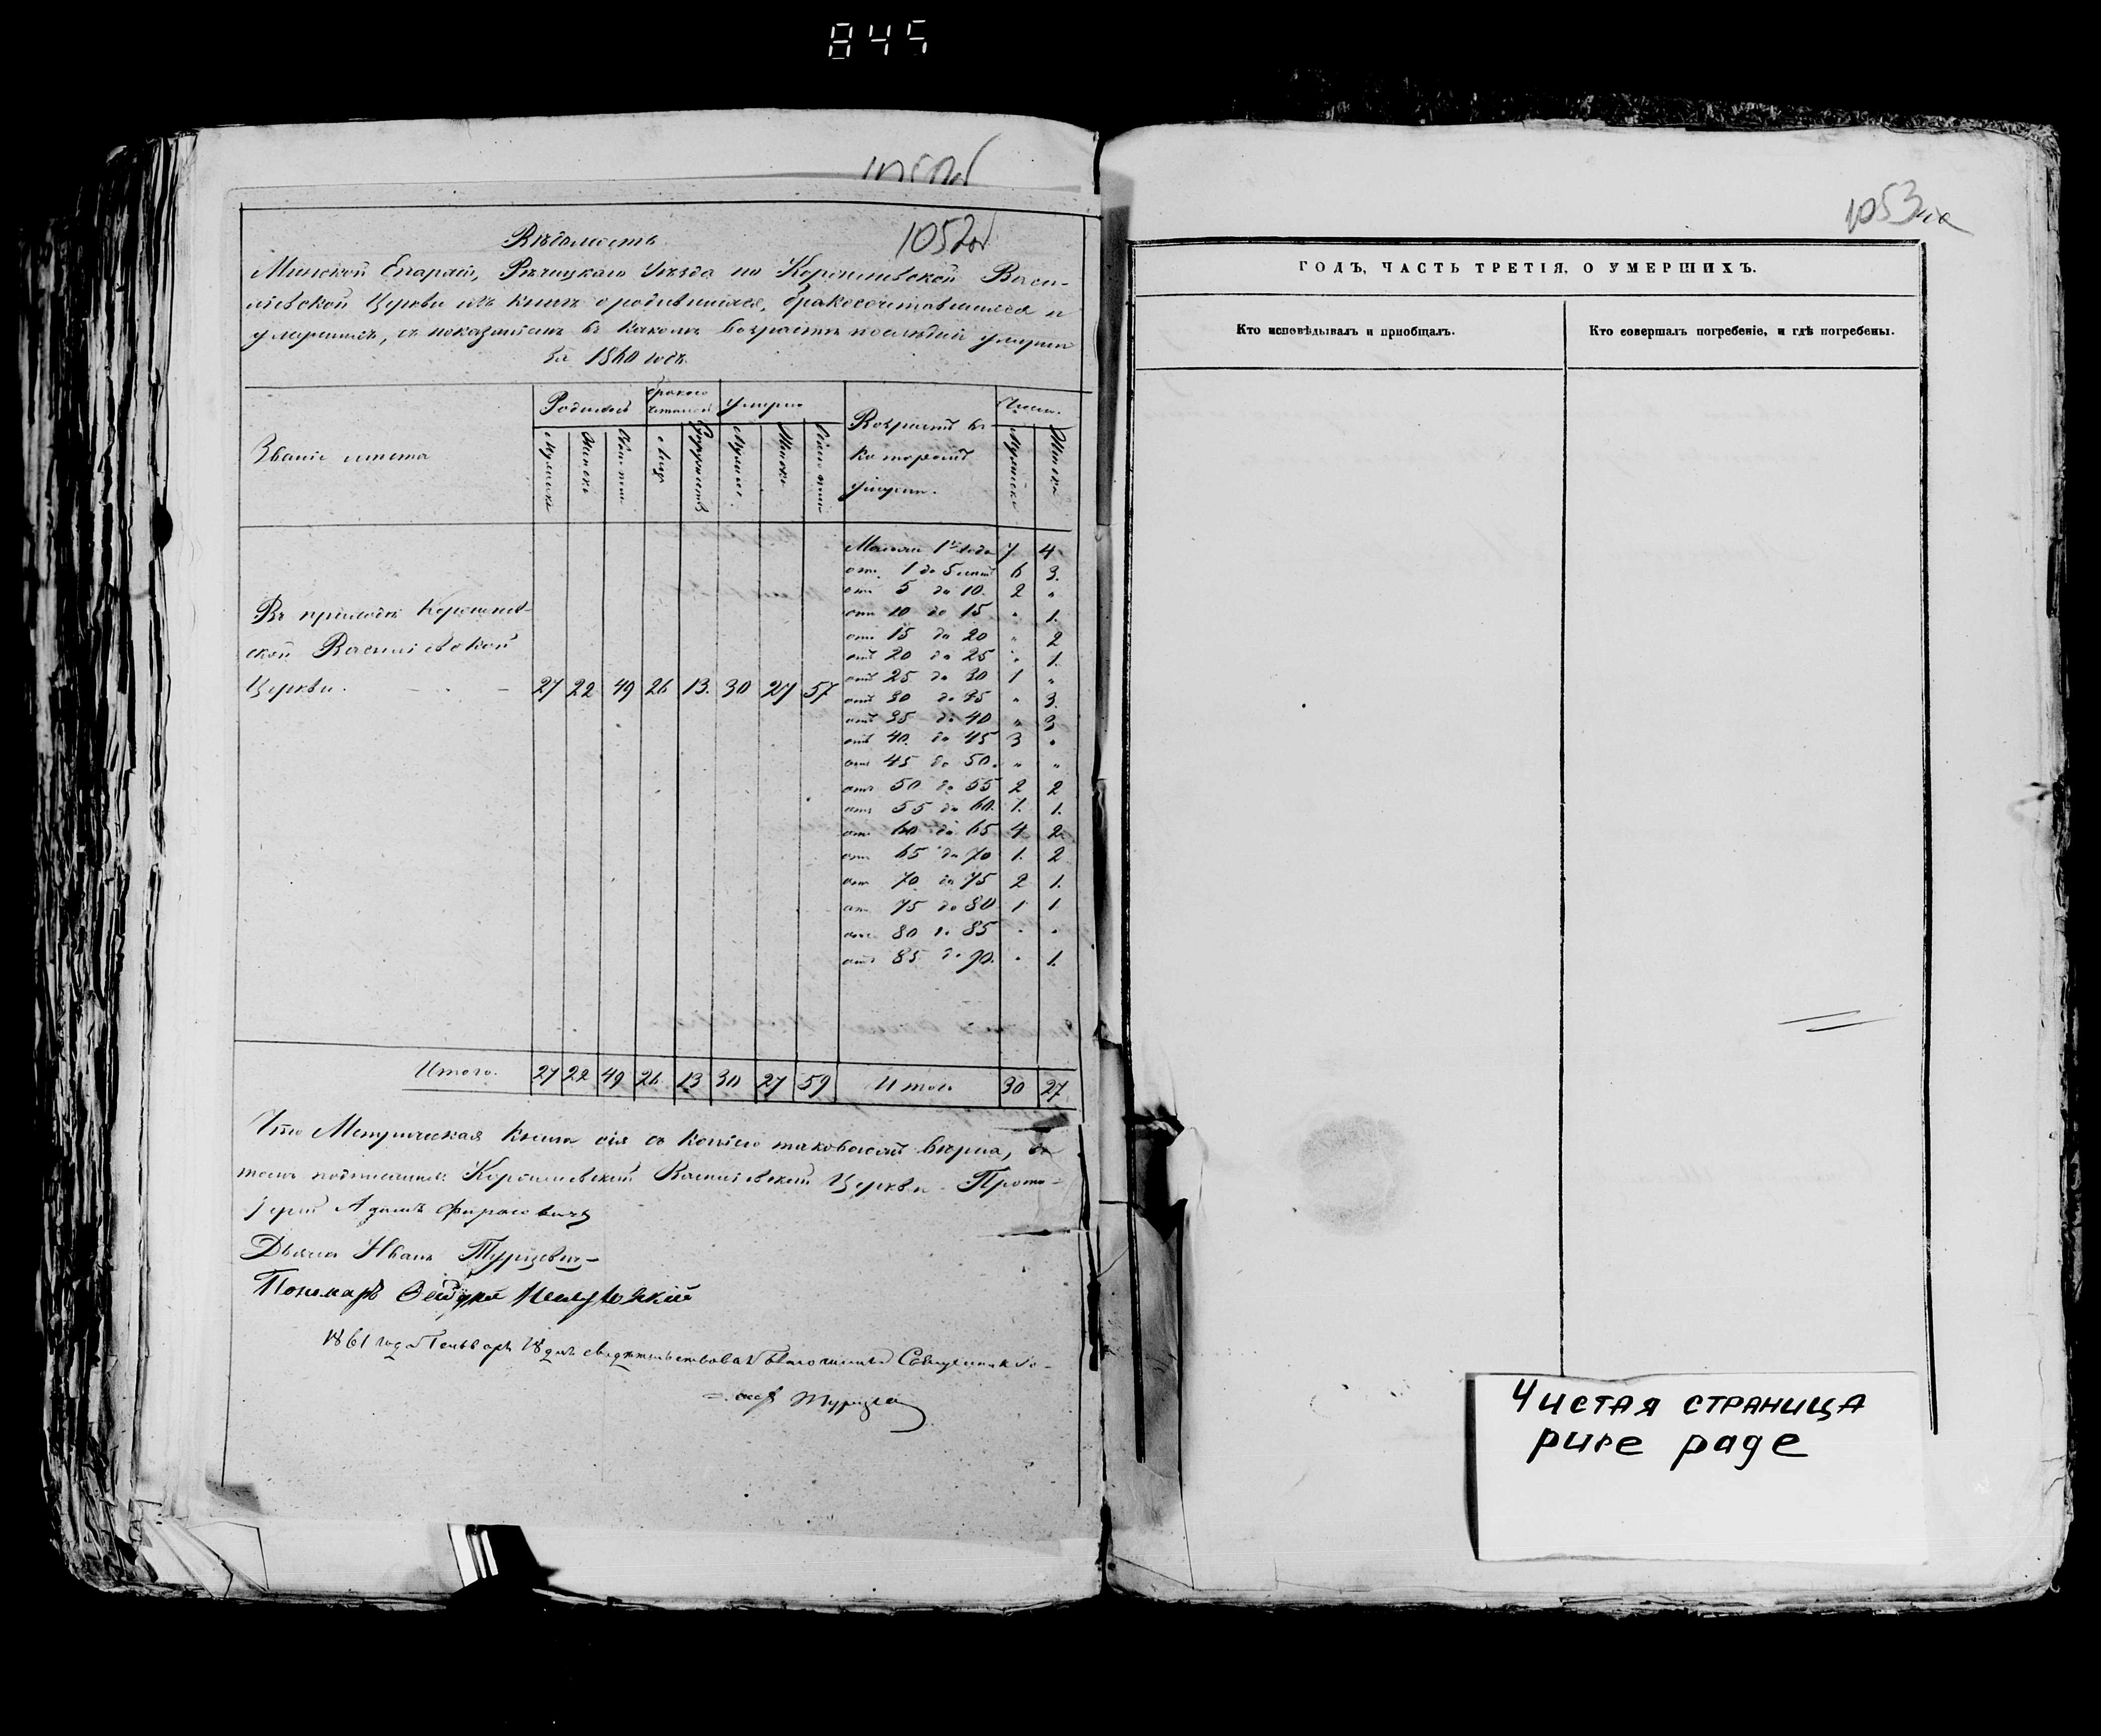 845
1052об
Вѣдомость
Минской Епархіи, Рѣчицкаго Уѣзда по Васи-
ліевской Церкви изъ книгъ о родившихся, бракосочетавшихся и
умершихъ, съ показаніемъ въ какомъ возрастѣ послѣдніи умерли
за 1860 годъ.
Званіе мѣста
Родилось
бракосо
четалось
Умерло
Возрастъ въ
которомъ
умерли.
Число.
Мужеска
Женска
Обоего пола
Лицъ
Супружествъ
Мужеска
Женска
Обоего пола
Мужеска
Женска
Въ приходѣ
ской Васильевской
Церкви. 27 22 49 26 13. 30 27 57
Менѣе 1го года 7 4
отъ 1 до 5 лѣтъ 6 3.
отъ 5 до 10. 2 "
отъ 10 до 15 " 1.
отъ 15 до 20 " 2
отъ 20 до 25 " 1.
отъ 25 до 30 1 "
отъ 30 до 35 " 3.
отъ 35 до 40 " 3
отъ 40. до 45 3 "
отъ 45 до 50. " "
отъ 50 до 55 2 2
отъ 55 до 60. 1. 1.
отъ 60 до 65 4 2.
отъ 65 до 70 1. 2
отъ 70 до 75 2 1.
отъ 75 до 80 1 1
отъ 80 до 85 " "
отъ 85 до 90. " 1.
Итого. 27 22 49 26. 13 30 27 59 Итого 30 27
Что Метрическая книга сія съ копіею таковою вѣрна, въ
томъ подписались: Васильевской Церкви Прото-
іерей Адамъ
Дьячекъ Иванъ Турцевичъ
Пономарь
1861 года Генваря 18 дня свидѣтельствовалъ Благочинный Священникъ
1053
ГОДЪ, ЧАСТЬ ТРЕТІЯ, О УМЕРШИХЪ.
Кто исповѣдывалъ и пріобщалъ.
Кто совершалъ погребеніе, и гдѣ погребены.
Чистая страница
pure page